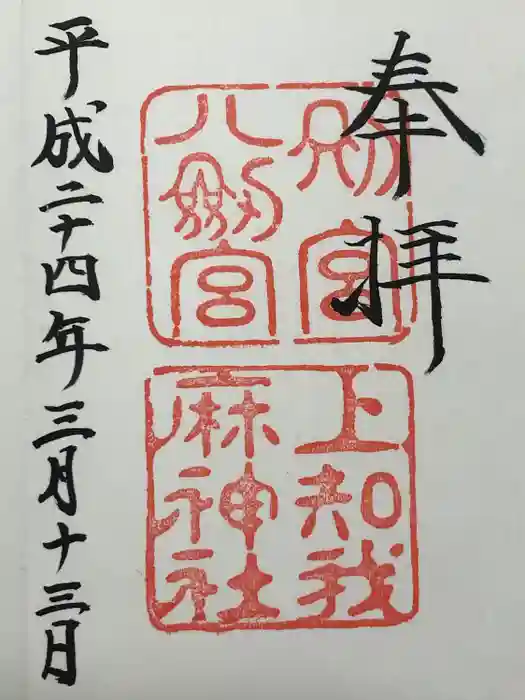 奉拝
別宮
八剣宮
上知我
麻神社
平成二十四年三月十三日